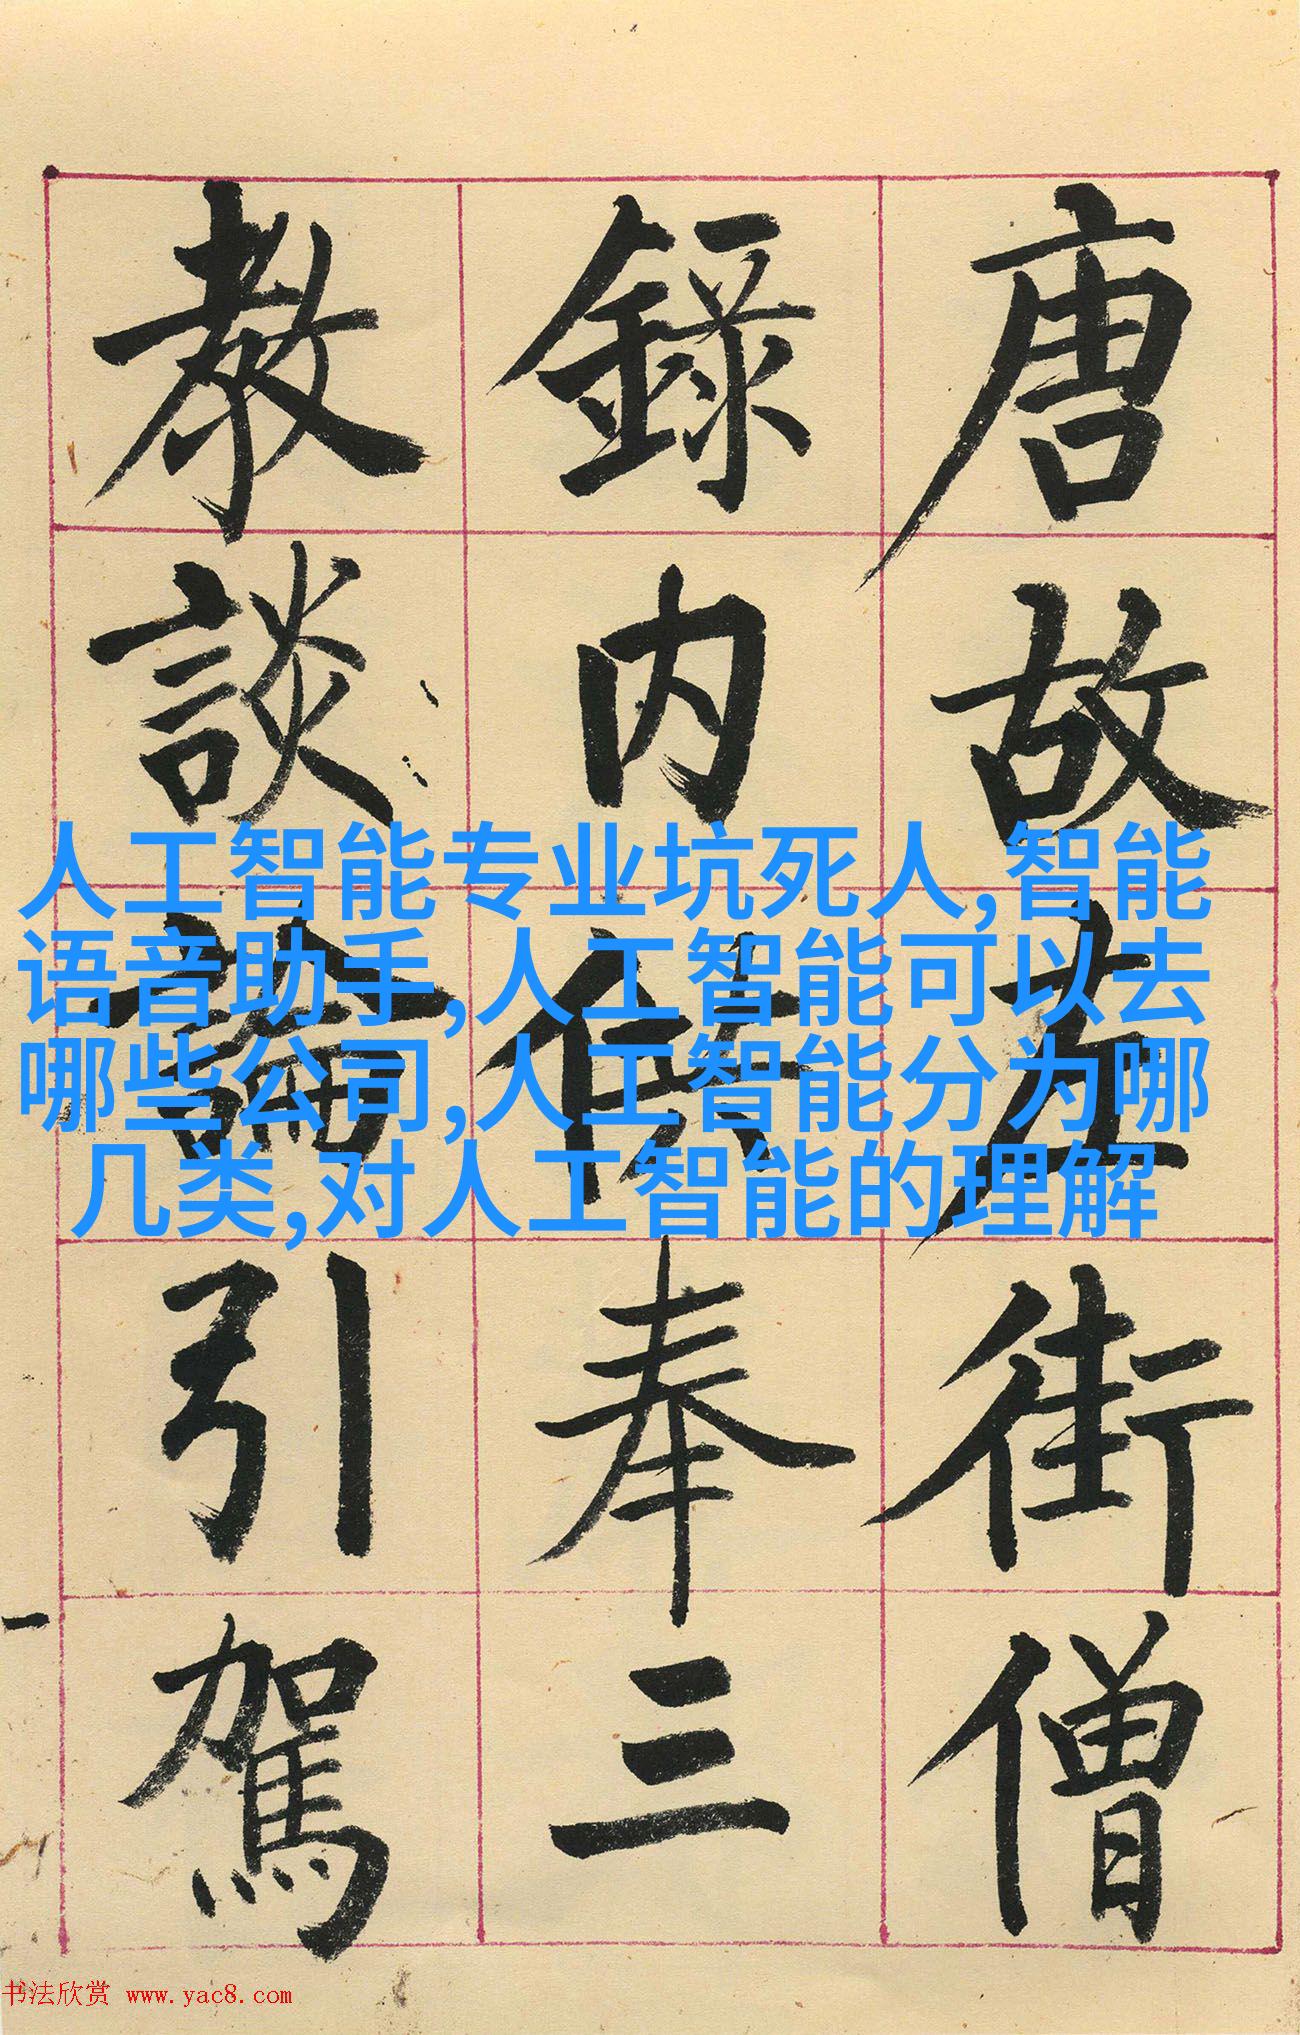 唐故左街僧
錄内供奉三
教談論引駕
人工智能专业坑死人,智能
语音助手,人工智能可以去
哪些公司,人工智能分为哪
几类,对人工智能的理解
书法欣赏 www.yac8.com